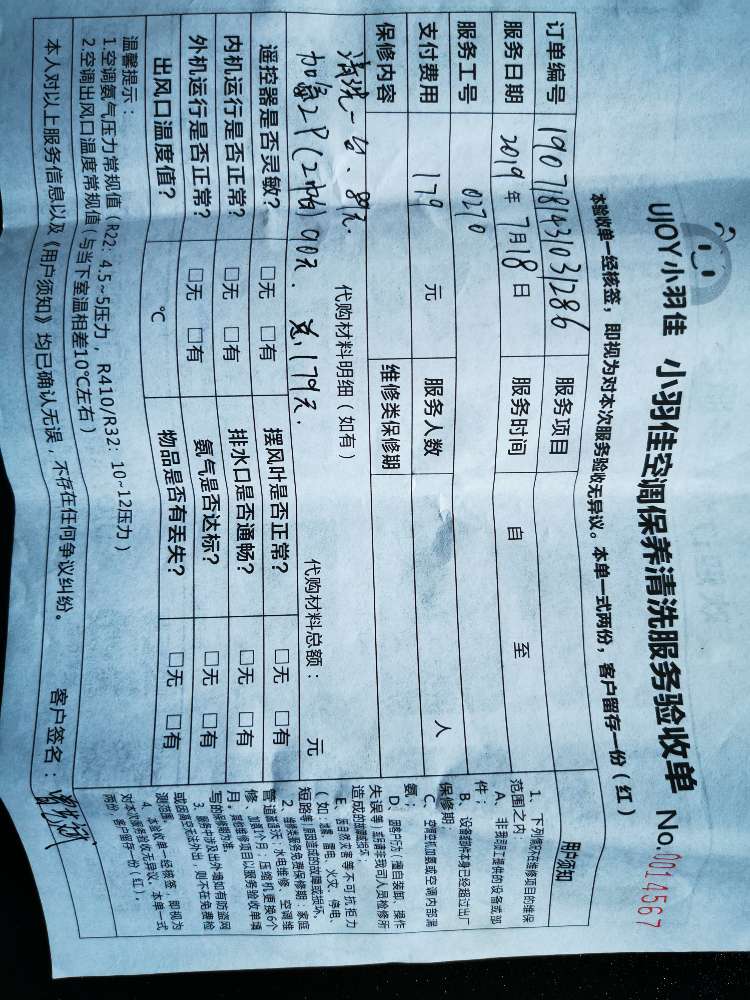 UJOY小羽佳 小羽佳空调保养清洗服务验收单 No.0014567
本验收单一经核签，即视为对本次服务验收无异议。本单一式两份，客户留存一份（红）
订单编号 190718143103286 服务项目
服务日期 2019年7月18日 服务时间 自 至
服务工号 0270
支付费用 179 元 服务人数 人
保修内容 维修类保修期
代购材料明细（如有） 代购材料总额： 元
清洗一台、89元.
加氨2P(2加)90元. 总179元.
遥控器是否灵敏? □无 □有 摆风叶是否正常? □无 □有
内机运行是否正常? □无 □有 排水口是否通畅? □无 □有
外机运行是否正常? □无 □有 氨气是否达标? □无 □有
出风口温度值? ℃ 物品是否有丢失? □无 □有
温馨提示：
1.空调氨气压力常规值（R22：4.5~5压力，R410/R32：10~12压力）
2.空调出风口温度常规值（与当下室温相差10℃左右）
本人对以上服务信息以及《用户须知》均已确认无误，不存在任何争议纠纷。 客户签名：
用户须知
1、下列情况不在维修项目的维保
范围之内
A、非我司工提供的设备或部
件；
B、设备部件本身已经超过出厂
保修期；
C、空调机加氨或空调内部漏
氨；
D、因客户行为（擅自装卸、操作
失误等）或后请非我司人员检修所
造成的故障或损坏.
E、因自然灾害等不可抗拒力
（如：洪灾、雷电、火灾、停电、
短路等）原因造成的故障或损坏.
2、维修类服务免费保修期：家庭
管道疏通3天；水电维修、空调维
修、加氨1个月；压缩机更换6个
月；其他维修项目以服务验收单填
写的保修期为准.
3、服务中涉及出外墙如有防盗网
或因素受无法外出，则不在免费检
测范围。
4、本验收单一经核签，即视为
对本次服务验收无异议。本单一式
两份，客户留存一份（红）。